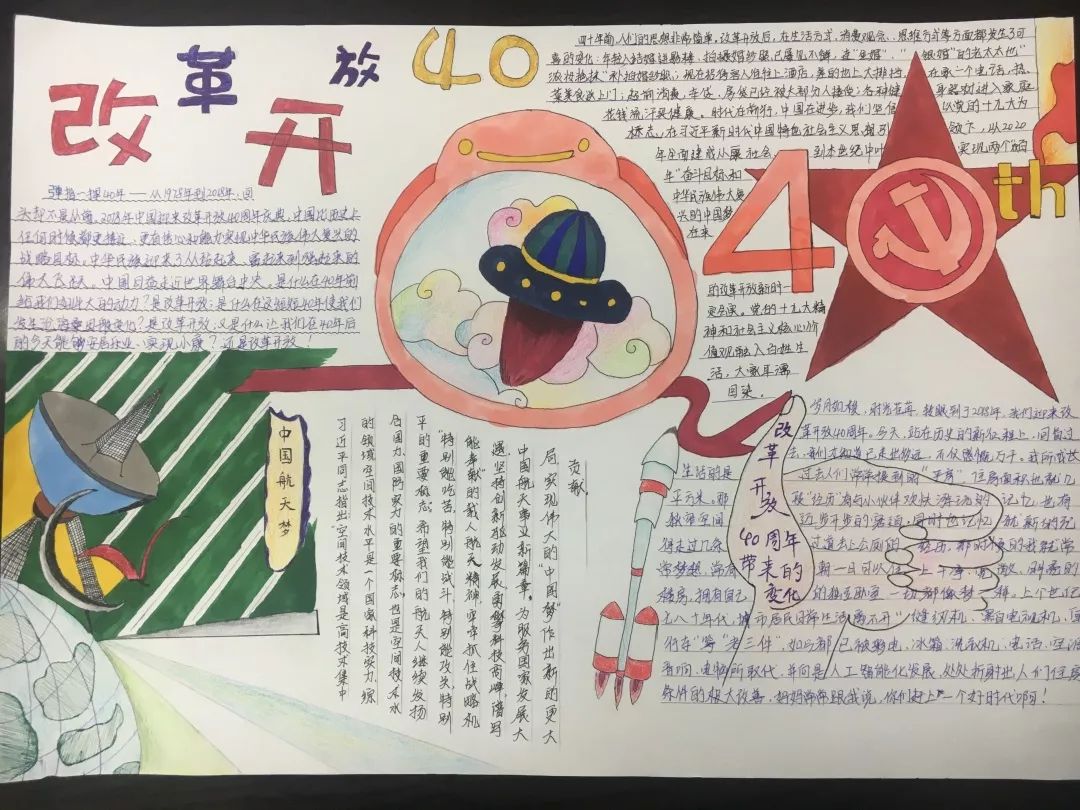 改革开放40
弹指一挥40年——从1978年到2018年,回
头却不是从前,2018年中国迎来改革开放40周年庆典,中国比历史上
任何时候都更接近、更有信心和能力实现中华民族伟大复兴的
战略目标,中华民族迎来了从站起来、富起来到强起来的
伟大飞跃。中国日益走近世界舞台中央。是什么在40年前
给我们如此大的动力?是改革开放;是什么在这短短40年使我们
发生沧海桑田般变化?是改革开放;又是什么让我们在40年后
的今天能够安居乐业、实现小康?还是改革开放!
四十年前,人们的思想非常简单。改革开放后,在生活方式、消费观念、思维方式等方面都发生了可
喜的变化:年轻人结婚
菜美食送上门;超前消费,车贷、房贷已经被大部分人接受;各种健
花钱流汗买健康。时代在前行,中国在进步,我们坚信
以党的十九大为
标志,在习近平新时代中国特色社会主义思想引
领下,以2020
年全面建成小康社会、
到本世纪中叶
实现两个“百
年”奋斗目标和
中华民族伟大复
兴的中国梦
的改革开放新的一
党的十九大精
神和社会主义核心价
值观融入百姓生
活,大家耳濡
目染。
40th
中国航天梦
习近平同志指出“空间技术领域是高技术集中
的领域空间技术水平是一个国家科技实力、综
合国力、国防实力的重要标志,也是空间技术水
平的重要标志。希望我们的航天人继续发扬
“特别能吃苦、特别能战斗、特别能攻关、特别
能奉献”的载人航天精神,牢牢抓住战略机
遇,坚持创新驱动发展,勇攀科技高峰,谱写
中国航天事业新篇章。为服务国家发展大
局、实现伟大的“中国梦”作出新的更大
贡献。
改革开放40周年带来的变化
岁月如梭,时光荏苒,转眼到了2018年,我们迎来改
革开放40周年。今天,站在历史的新征程上,回首过
去,我们才知道已走出好远,不仅感慨万千。
生活的是
过去人们常常提到的“平房”,
平方米。那
有与小伙伴欢快游玩的记忆,也有
同时也记忆
过道去上公厕的
朝一日可以住
上干净、宽敞、明亮的
楼房,拥有自己
的独立卧室
一切都像梦一样。上个世纪
七八十年代,城市居民日常生活离不开“缝纫机、
行车”等“老三件”,如今都已被彩电、冰箱、洗衣机、电话、空调
音响、电脑所取代,并向是人工智能化发展,处处折射出人们住房
条件的极大改善,妈妈常常跟我说,你们赶上一个好时代啊!